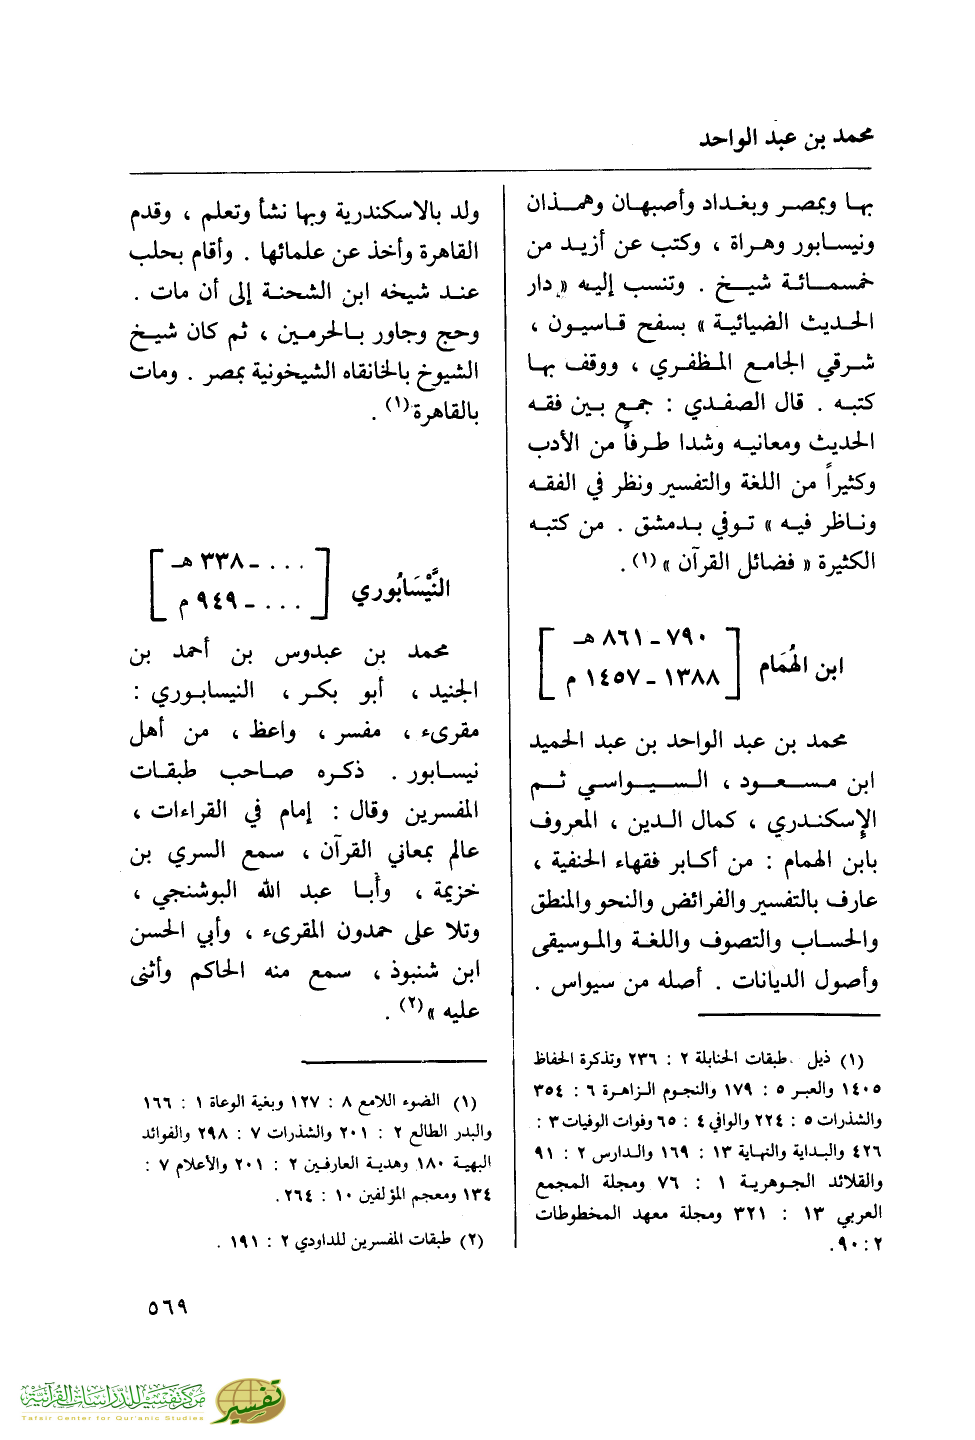 محمد بن عبد الواحد
بها وبمصر وبغداد وأصبهان وهمذان
ونيسابور وهراة ، وكتب عن أزيد من
خمسمائة شيخ . وتنسب إليه « دار
الحديث الضيائية » بسفح قاسيون ،
شرقي الجامع المظفري ، ووقف بها
كتبه . قال الصفدي : جمع بين فقه
الحديث ومعانيه وشدا طرفاً من الأدب
وكثيراً من اللغة والتفسير ونظر في الفقه
وناظر فيه » توفي بدمشق . من كتبه
الكثيرة « فضائل القرآن » (١) .
ابن الهُمَام [ ٧٩٠ - ٨٦١ هـ
١٣٨٨ - ١٤٥٧ م ]
محمد بن عبد الواحد بن عبد الحميد
ابن مسعود ، السيواسي ثم
الإسكندري ، كمال الدين ، المعروف
بابن الهمام : من أكابر فقهاء الحنفية ،
عارف بالتفسير والفرائض والنحو والمنطق
والحساب والتصوف واللغة والموسيقى
وأصول الديانات . أصله من سيواس .
(١) ذيل طبقات الحنابلة ٢ : ٢٣٦ وتذكرة الحفاظ
١٤٠٥ والعبر ٥ : ١٧٩ والنجوم الزاهرة ٦ : ٣٥٤
والشذرات ٥ : ٢٢٤ والوافي ٤ : ٦٥ وفوات الوفيات ٣ :
٤٢٦ والبداية والنهاية ١٣ : ١٦٩ والدارس ٢ : ٩١
والقلائد الجوهرية ١ : ٧٦ ومجلة المجمع
العربي ١٣ : ٣٢١ ومجلة معهد المخطوطات
٢ : ٩٠ .
ولد بالاسكندرية وبها نشأ وتعلم ، وقدم
القاهرة وأخذ عن علمائها . وأقام بحلب
عند شيخه ابن الشحنة إلى أن مات .
وحج وجاور بالحرمين ، ثم كان شيخ
الشيوخ بالخانقاه الشيخونية بمصر . ومات
بالقاهرة (١) .
النَّيْسَابُوري [ . . . - ٣٣٨ هـ
. . . - ٩٤٩ م ]
محمد بن عبدوس بن أحمد بن
الجنيد ، أبو بكر ، النيسابوري :
مقرىء ، مفسر ، واعظ ، من أهل
نيسابور . ذكره صاحب طبقات
المفسرين وقال : إمام في القراءات ،
عالم بمعاني القرآن ، سمع السري بن
خزيمة ، وأبا عبد الله البوشنجي ،
وتلا على حمدون المقرىء ، وأبي الحسن
ابن شنبوذ ، سمع منه الحاكم وأثنى
عليه » (٢) .
(١) الضوء اللامع ٨ : ١٢٧ وبغية الوعاة ١ : ١٦٦
والبدر الطالع ٢ : ٢٠١ والشذرات ٧ : ٢٩٨ والفوائد
البهية ١٨٠ وهدية العارفين ٢ : ٢٠١ والأعلام ٧ :
١٣٤ ومعجم المؤلفين ١٠ : ٢٦٤ .
(٢) طبقات المفسرين للداودي ٢ : ١٩١ .
٥٦٩
مركز تفسير للدراسات القرآنية
Tafsir Center for Qur'anic Studies
تفسير